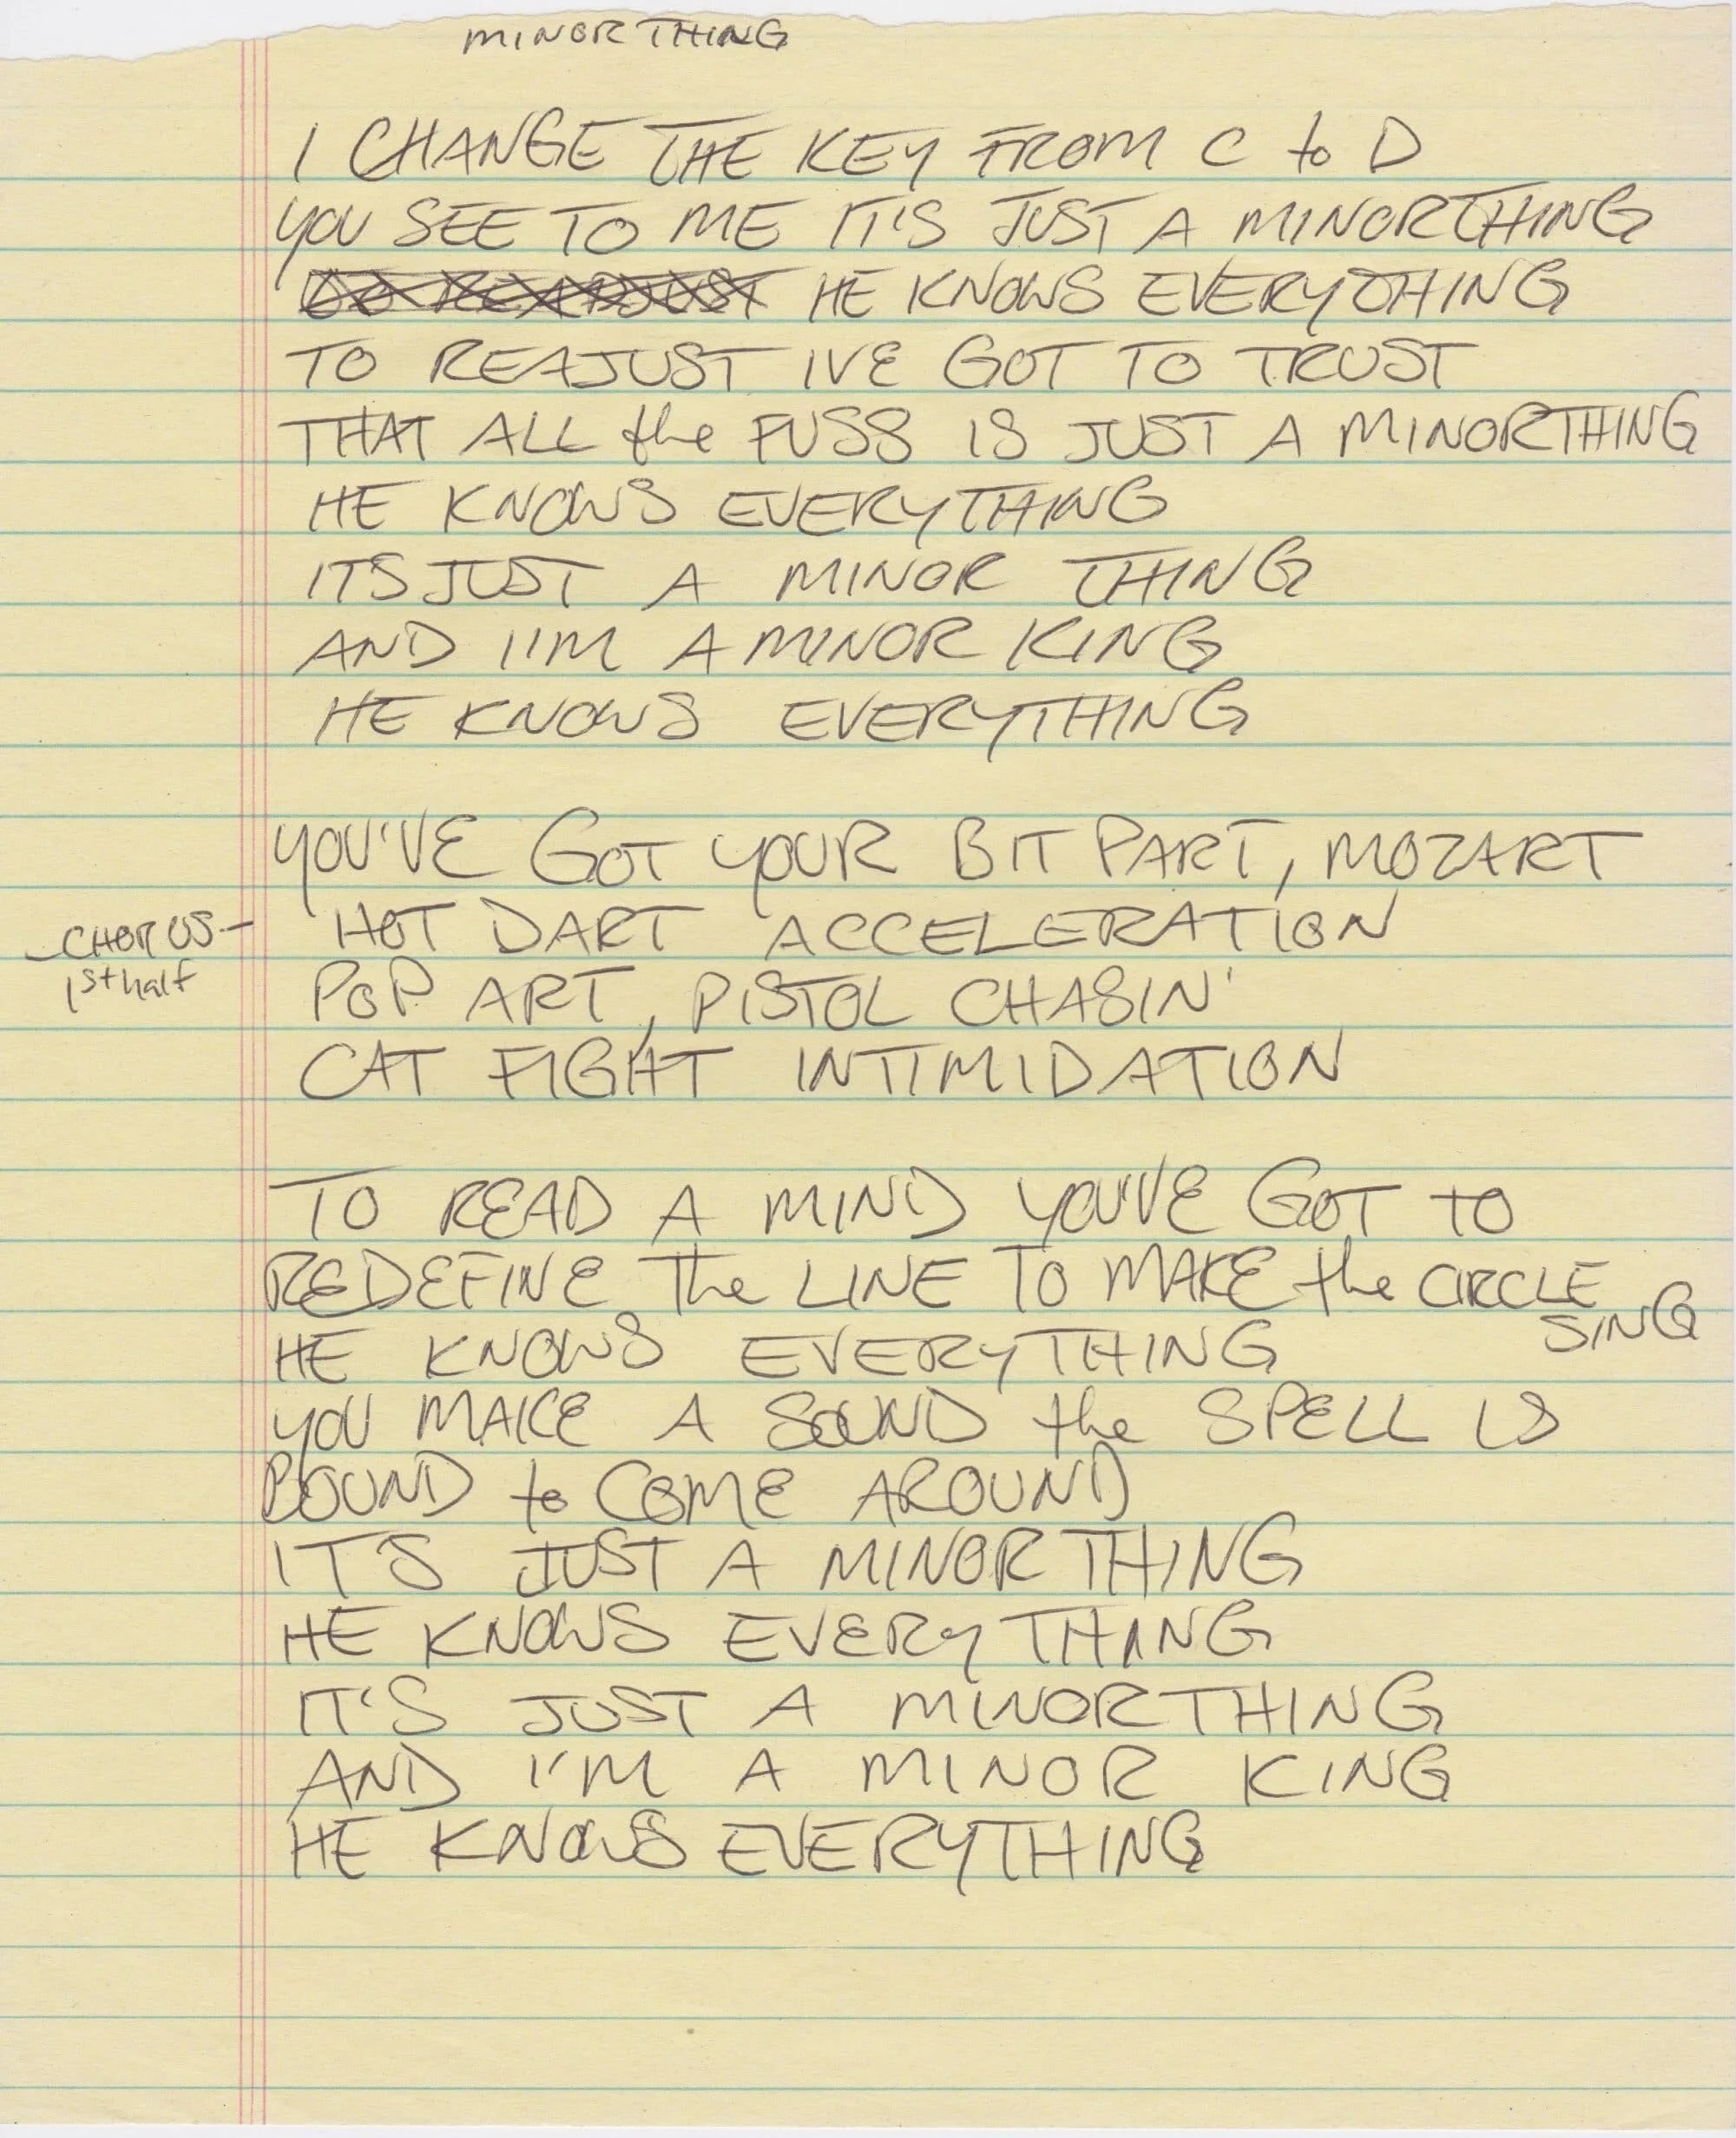 MINOR THING
I CHANGE THE KEY FROM C to D
YOU SEE TO ME IT'S JUST A MINOR THING
TO REAJUST HE KNOWS EVERYTHING
TO REAJUST IVE GOT TO TRUST
THAT ALL the FUSS IS JUST A MINOR THING
HE KNOWS EVERYTHING
ITS JUST A MINOR THING
AND I'M A MINOR KING
HE KNOWS EVERYTHING
YOU'VE GOT YOUR BIT PART, MOZART
CHORUS - HOT DART ACCELERATION
1st half POP ART, PISTOL CHASIN'
CAT FIGHT INTIMIDATION
TO READ A MIND YOU'VE GOT TO
REDEFINE The LINE TO MAKE the CIRCLE
SING
HE KNOWS EVERYTHING
YOU MAKE A SOUND the SPELL IS
BOUND to COME AROUND
IT'S JUST A MINOR THING
HE KNOWS EVERYTHING
IT'S JUST A MINOR THING
AND I'M A MINOR KING
HE KNOWS EVERYTHING